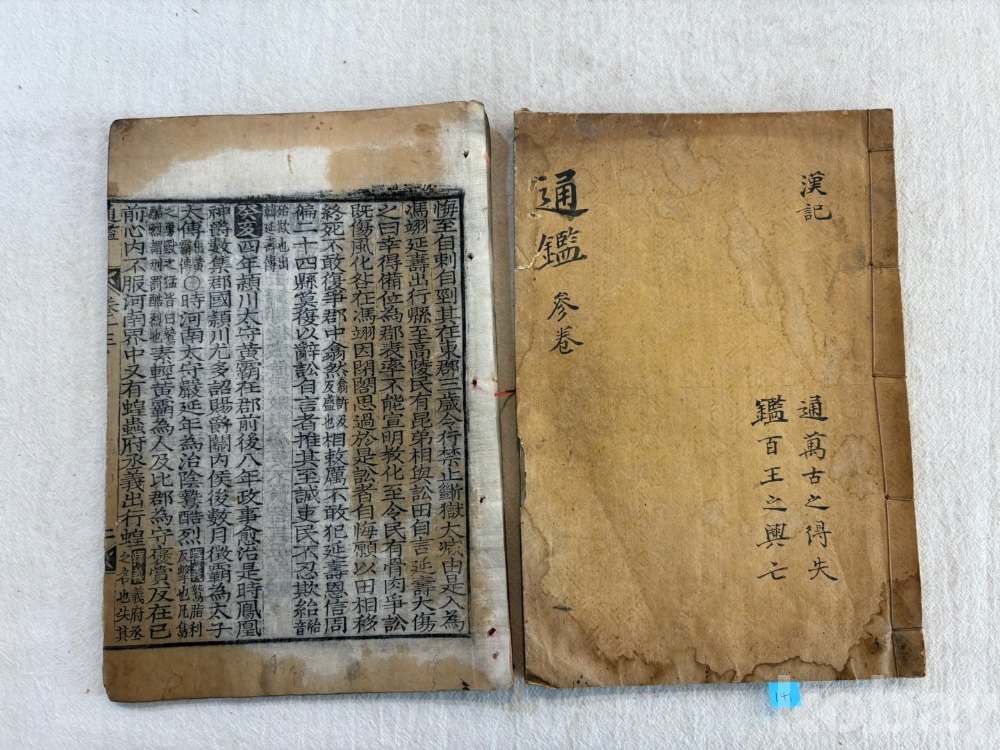 悔至自刺自剄其在東郡三歲令行禁止斷獄大減由是入為
馮翊延壽出行縣至高陵民有昆弟相與訟田自言延壽大傷
之曰幸得備位為郡表率不能宣明教化至令民有骨肉爭訟
既傷風化咎在馮翊因閉閤思過於是訟者自悔願以田相移
終死不敢復爭郡中翕然翕許及反盛也相敕厲不敢犯延壽恩信周
偏二十四縣莫復以辭訟自言者推其至誠吏民不忍欺紿紿音
殆欺也出韓延壽傳
癸亥四年潁川太守黃霸在郡前後八年政事愈治是時鳳凰
神爵數集郡國潁川尤多詔賜爵關內侯後數月徵霸為太子
太傅○時河南太守嚴延年為治陰鷙酷烈
素輕黃霸為人及比郡為守褒賞反在己
前心內不服河南界中又有蝗蟲府丞義出行蝗之名也失其
通鑑
漢記
通萬古之得失
鑑百王之興亡
通鑑 參卷
141